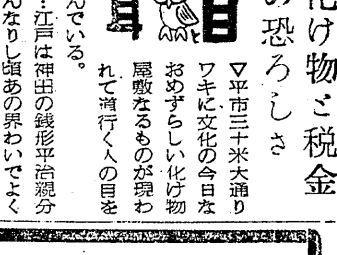 化け物と税金
の恐ろしさ
▽平市三十米大通り
ワキに文化の今日な
おめずらしい化け物
屋敷なるものが現わ
れて道行く人の目を
んでいる。
江戸は神田の銭形平治親分
んなりし頃あの界わいでよく